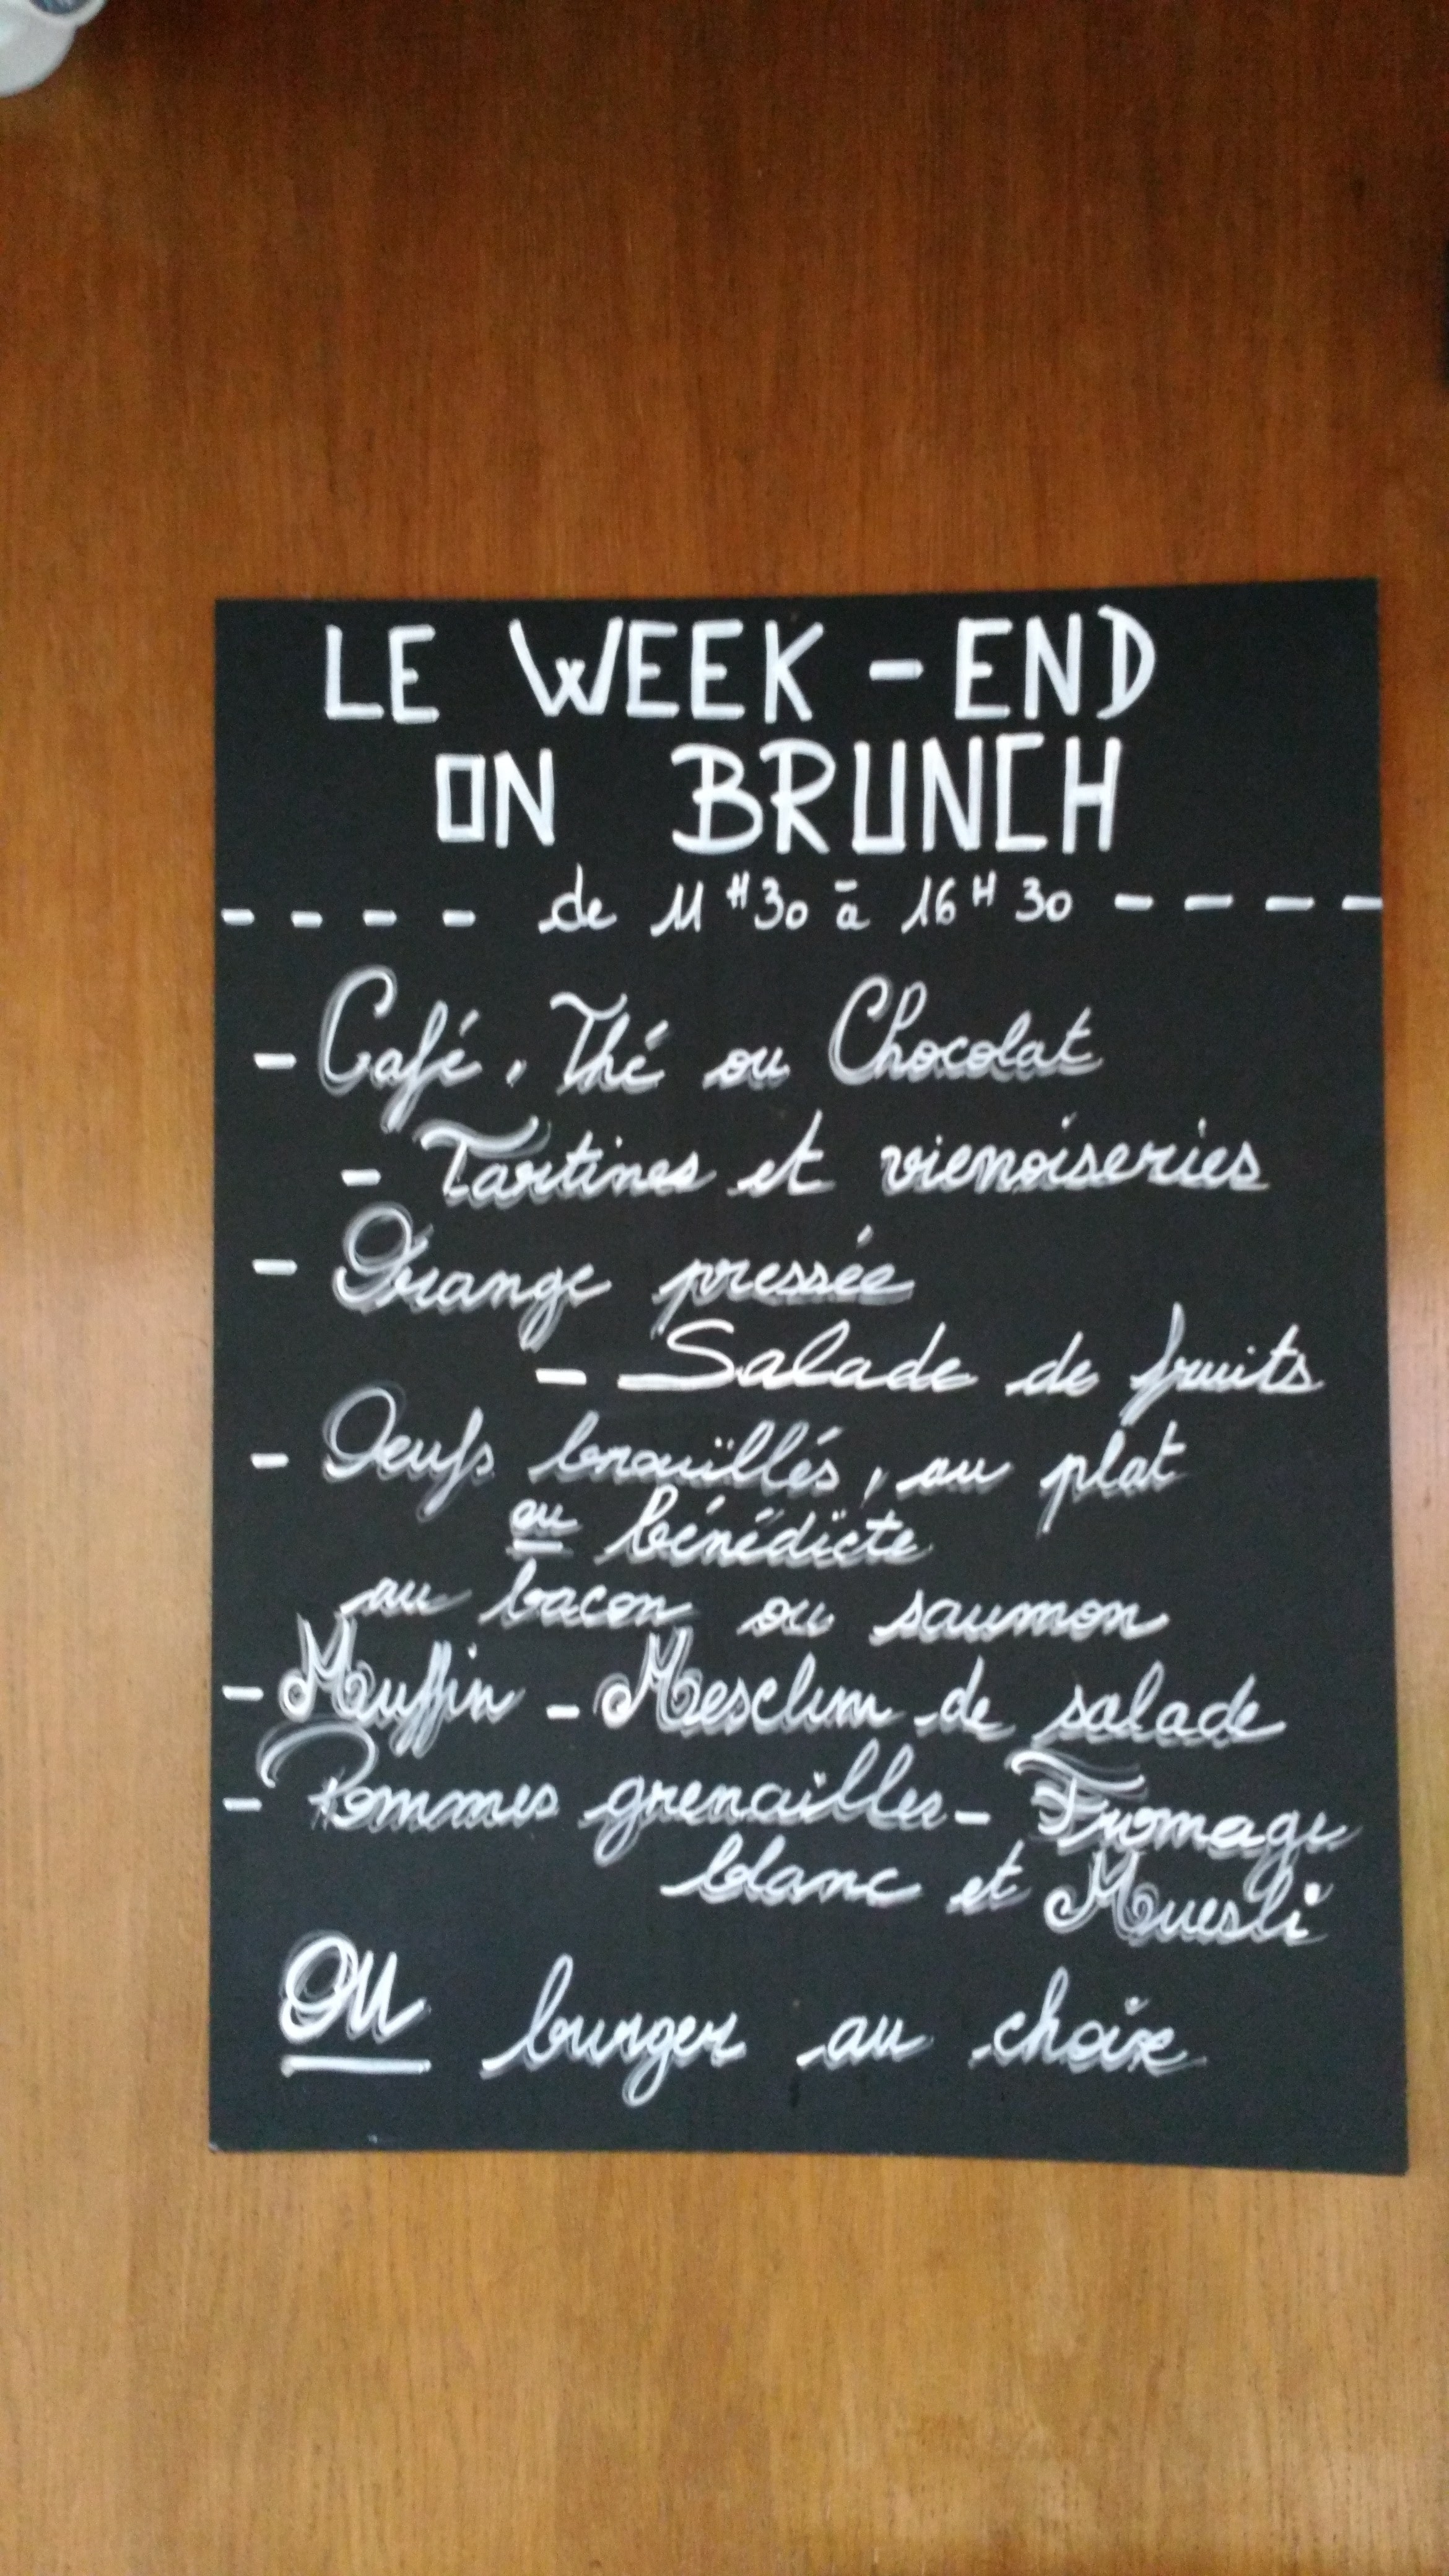 LE WEEK-END
ON BRUNCH
---- de 11H30 à 16H30 ----
- Café, Thé ou Chocolat
- Tartines et vienoiseries
- Orange pressée
- Salade de fruits
- Oeufs brouïllés, au plat
ou bénédicte
au bacon ou saumon
- Muffin - Mesclun de salade
- Pommes grenailles - Fromage
blanc et Muesli
OU burger au choix